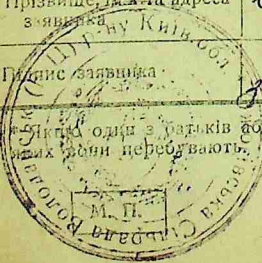 Прізвище, ім'я та адреса
заявника
Підпис заявника
* Якщо один з батьків або
яких вони перебувають.
М. П.
р-ну Київ. обл.
Сільрада Волода